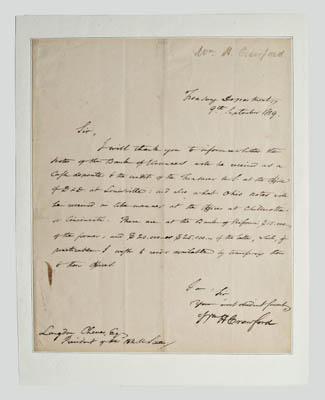 Wm. H. Crawford
Treasury Department
9th September 1819.
Sir,
I will thank you to inform me whether the
notes of the Bank of Vincennes will be received as a
Cash deposite to the credit of the Treasurer U.S at the office
of D & D at Louisville; and also what Ohio notes will
be received in like manner at the offices at Chillicothe
or Cincinnati. There are at the Bank of
of the former, and of the latter, which, if
practicable I wish to render available by transferring them
to those offices.
I am, Sir
Your most obedient servant
Wm H Crawford
Langdon Cheves, Esq
President of the Bk U. States